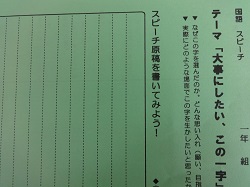 国語 スピーチ
一年 組
テーマ「大事にしたい、この一字」
▼なぜこの字を選んだのか、どんな思い入れ(願い、目標
▼実際にどのような場面でこの字を生かしたいと思ったか
スピーチ原稿を書いてみよう!